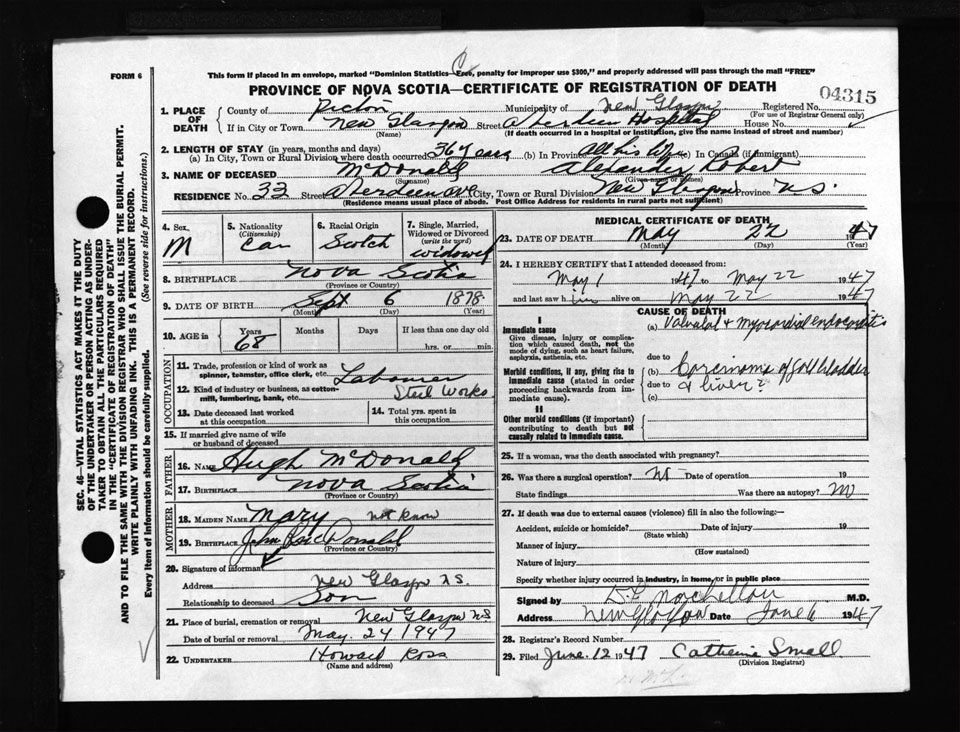 FORM 6
This form if placed in an envelope, marked "Dominion Statistics—Free, penalty for improper use $300," and properly addressed will pass through the mail "FREE"
PROVINCE OF NOVA SCOTIA—CERTIFICATE OF REGISTRATION OF DEATH
04315
1. PLACE OF DEATH
County of Pictou Municipality of New Glasgow Registered No.
(For use of Registrar General only)
If in City or Town New Glasgow Street Aberdeen Hospital House No.
(Name) (If death occurred in a hospital or institution, give the name instead of street and number)
2. LENGTH OF STAY (in years, months and days)
(a) In City, Town or Rural Division where death occurred 36 Years (b) In Province All his life (c) In Canada (if immigrant)
3. NAME OF DECEASED McDonald Robert
(Surname) (Given name or names)
RESIDENCE No. 33 Street Aberdeen Ave City, Town or Rural Division New Glasgow Province N.S.
(Residence means usual place of abode. Post Office Address for residents in rural parts not sufficient)
SEC. 46—VITAL STATISTICS ACT MAKES IT THE DUTY
OF THE UNDERTAKER OR PERSON ACTING AS UNDER-
TAKER TO OBTAIN ALL THE PARTICULARS REQUIRED
IN THE "CERTIFICATE OF REGISTRATION OF DEATH"
AND TO FILE THE SAME WITH THE DIVISION REGISTRAR WHO SHALL ISSUE THE BURIAL PERMIT.
WRITE PLAINLY WITH UNFADING INK. THIS IS A PERMANENT RECORD.
Every item of information should be carefully supplied. (See reverse side for instructions.)
4. Sex. 5. Nationality (Citizenship) 6. Racial Origin 7. Single, Married, Widowed or Divorced (write the word)
M Can Scotch widowed
8. BIRTHPLACE Nova Scotia
(Province or Country)
9. DATE OF BIRTH Sept 6 1878
(Month) (Day) (Year)
10. AGE in Years Months Days If less than one day old
68 hrs. or min.
OCCUPATION
11. Trade, profession or kind of work as spinner, teamster, office clerk, etc. Labourer
12. Kind of industry or business, as cotton-mill, lumbering, bank, etc. Steel Works
13. Date deceased last worked at this occupation
14. Total yrs. spent in this occupation.
15. If married give name of wife or husband of deceased
FATHER
16. NAME Hugh McDonald
17. BIRTHPLACE Nova Scotia
(Province or Country)
MOTHER
18. MAIDEN NAME Mary not know
19. BIRTHPLACE
(Province or Country)
20. Signature of informant John McDonald
Address New Glasgow N.S.
Relationship to deceased Son
21. Place of burial, cremation or removal New Glasgow N.S
Date of burial or removal May. 24 1947
22. UNDERTAKER Howard Ross
(Name and address)
MEDICAL CERTIFICATE OF DEATH
23. DATE OF DEATH May 22 1947
(Month) (Day) (Year)
24. I HEREBY CERTIFY that I attended deceased from:
May 1 1947 to May 22 1947
and last saw him alive on May 22 1947
CAUSE OF DEATH
I
Immediate cause
Give disease, injury or complication which caused death, not the mode of dying, such as heart failure, asphyxia, asthenia, etc.
(a) Valvular & myocardial endocarditis
due to
Morbid conditions, if any, giving rise to immediate cause (stated in order proceeding backwards from immediate cause).
(b) Carcinoma of gall bladder
due to & liver?
(c)
II
Other morbid conditions (if important) contributing to death but not causally related to immediate cause.
25. If a woman, was the death associated with pregnancy?
26. Was there a surgical operation? No Date of operation 19
State findings Was there an autopsy? No
27. If death was due to external causes (violence) fill in also the following:—
Accident, suicide or homicide? Date of injury 19
(State which)
Manner of injury
(How sustained)
Nature of injury
Specify whether injury occurred in industry, in home, or in public place
Signed by M.D.
Address New Glasgow Date June 6 1947
28. Registrar's Record Number
29. Filed June. 12 1947 Catherine Small
(Division Registrar)